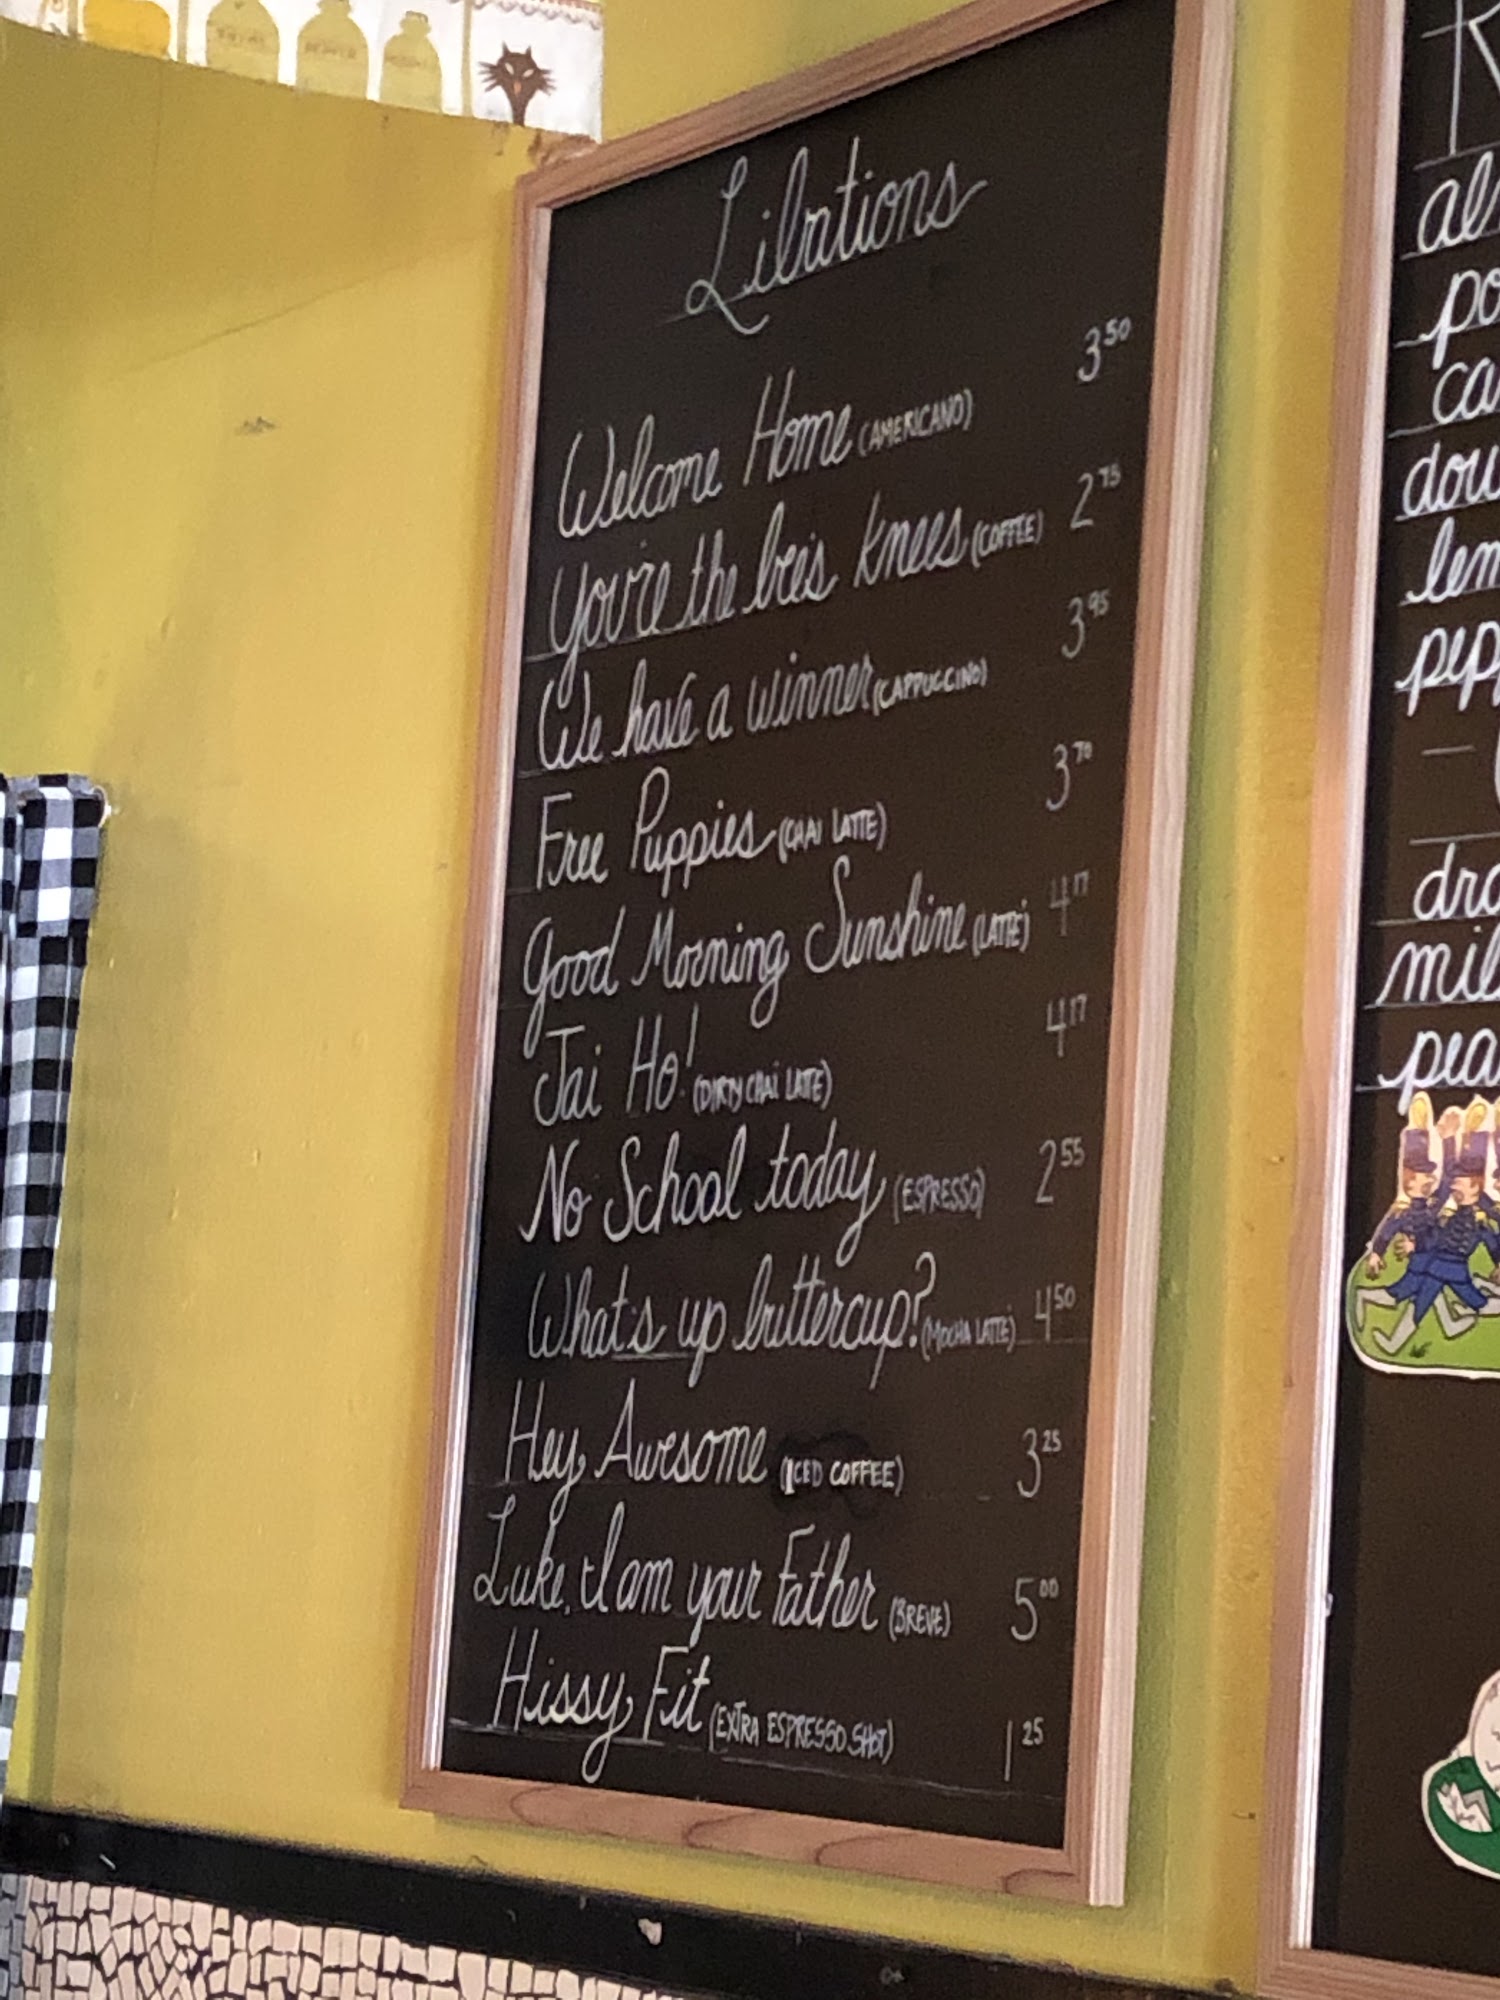 Libations
Welcome Home (AMERICANO) 3 50
You're the bee's knees (COFFEE) 2 75
We have a winner (CAPPUCCINO) 3 95
Free Puppies (CHAI LATTE) 3 70
Good Morning Sunshine (LATTE) 4 17
Jai Ho! (DIRTY CHAI LATTE) 4 17
No School today (ESPRESSO) 2 55
What's up buttercup? (MOCHA LATTE) 4 50
Hey Awesome (ICED COFFEE) 3 25
Luke, I am your Father (BREVE) 5 00
Hissy Fit (EXTRA ESPRESSO SHOT) 1 25